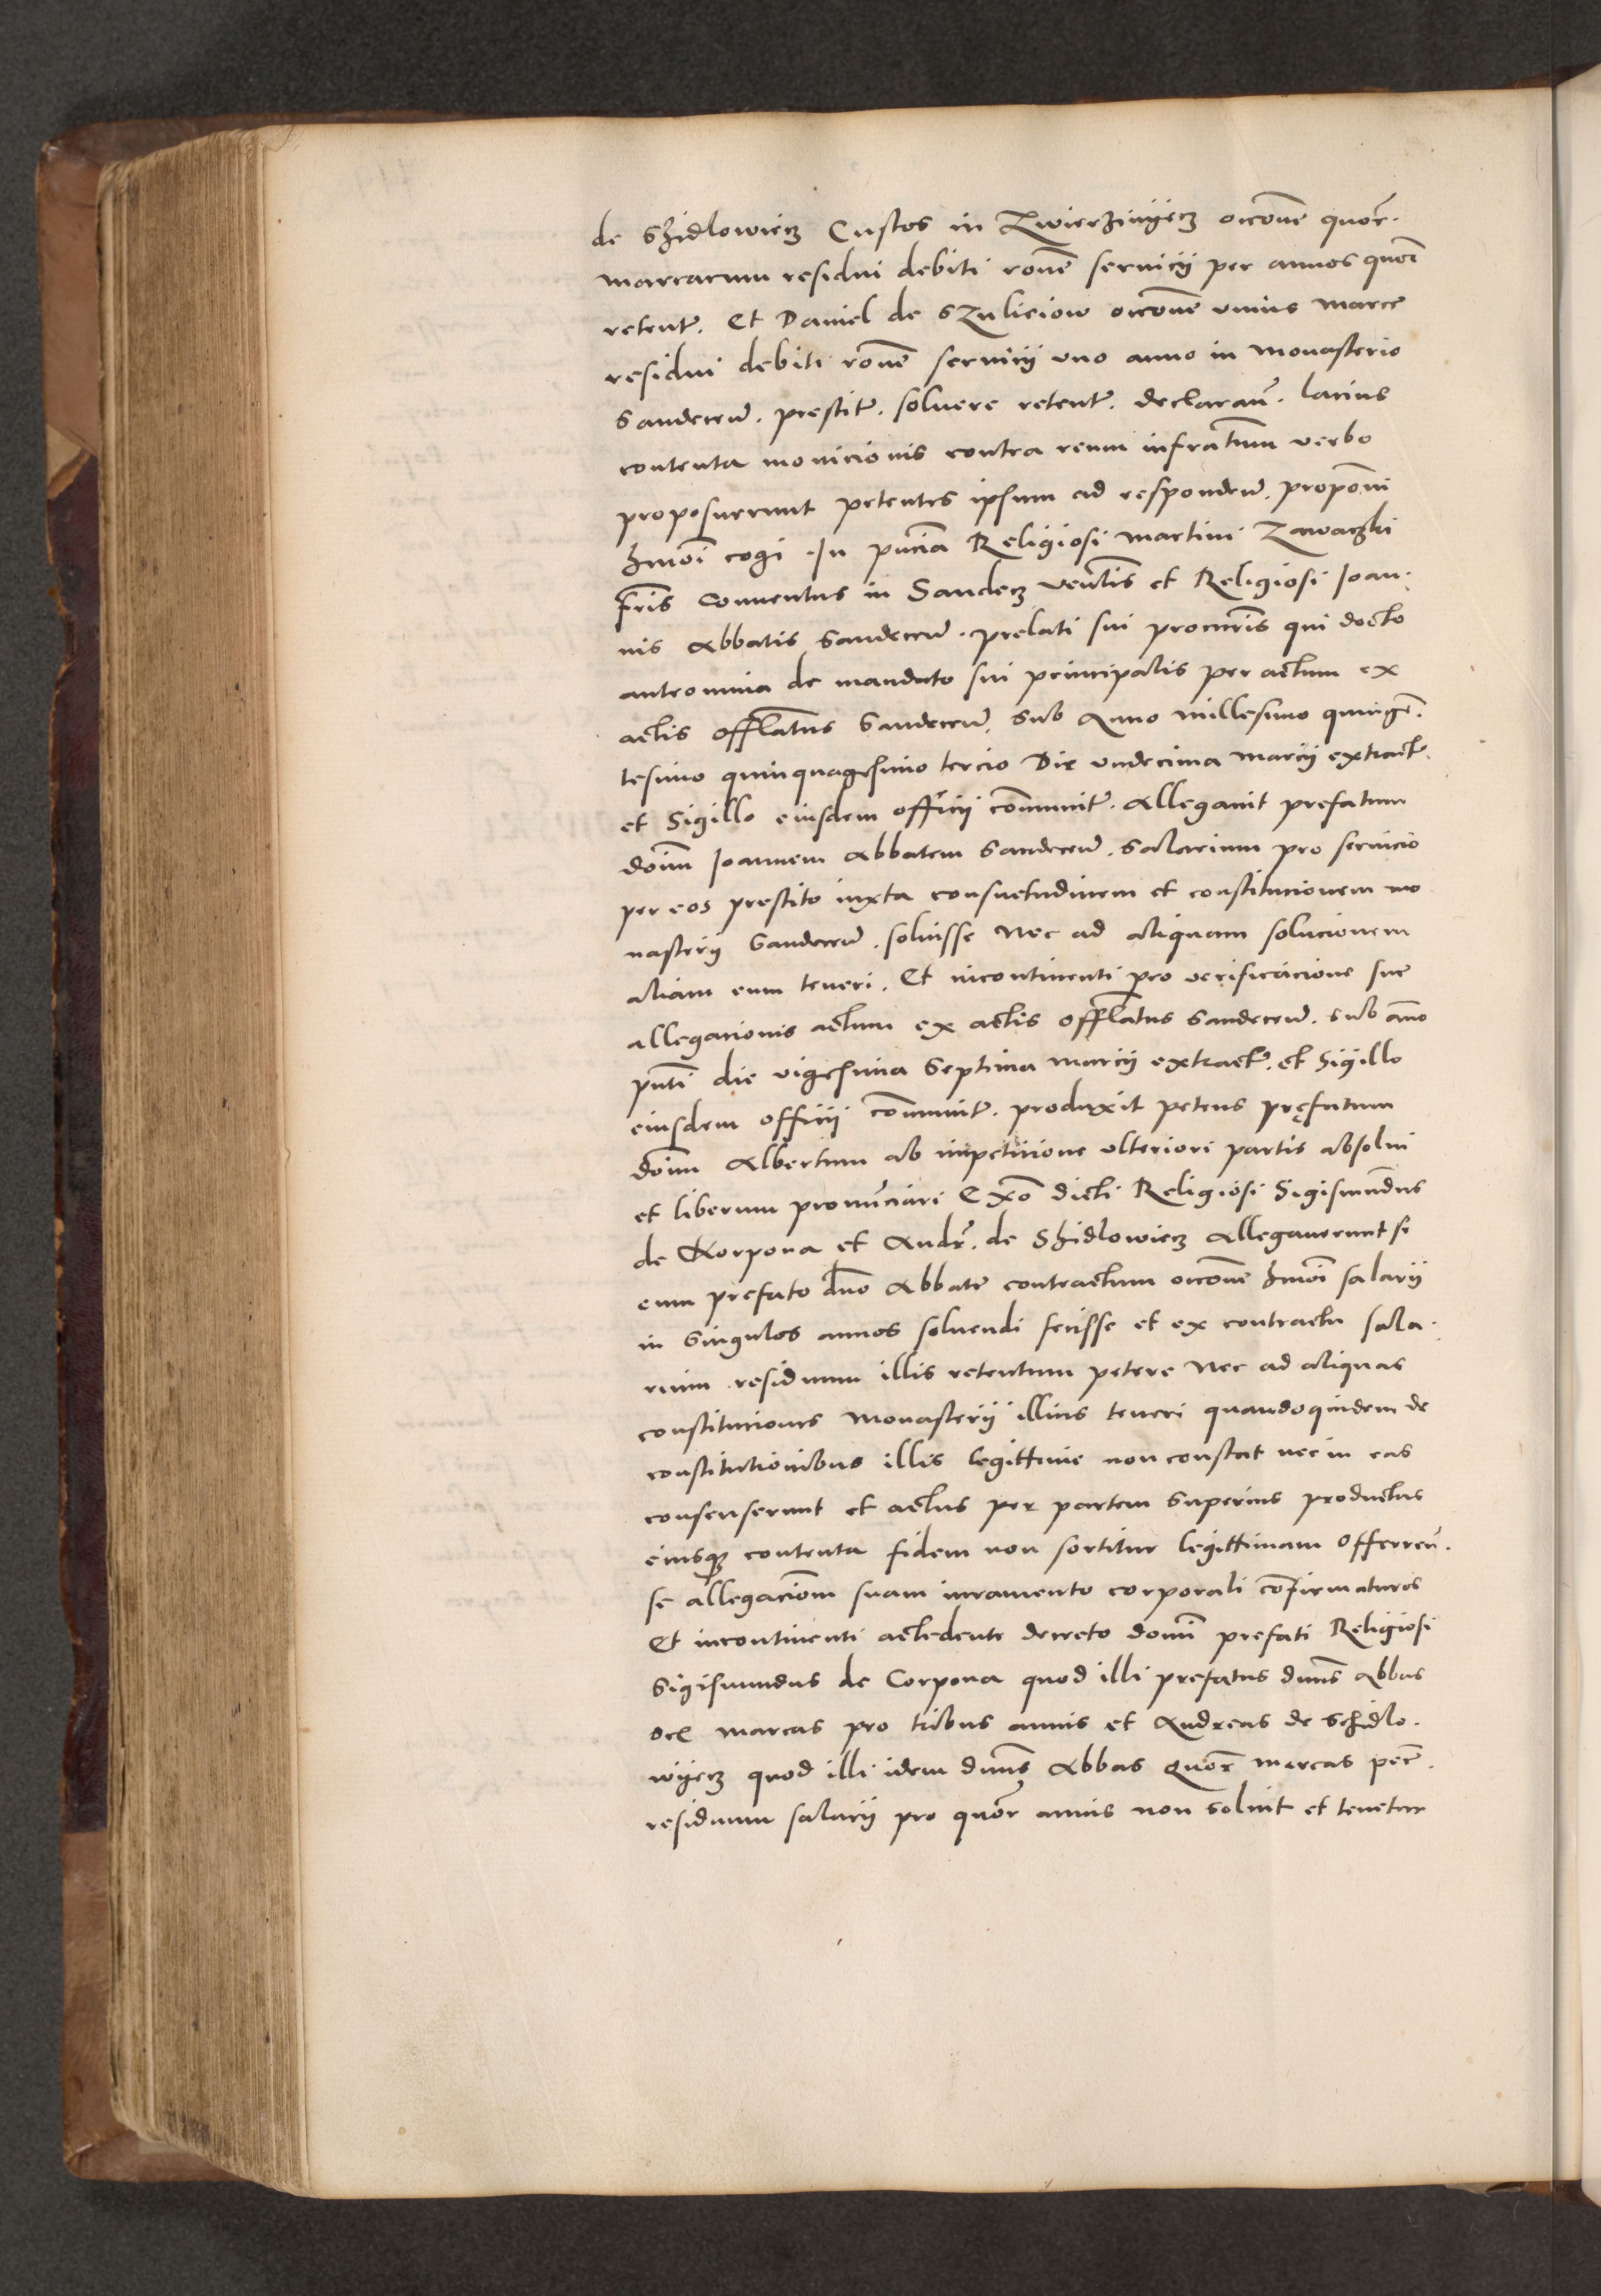 de Shidlowiecz Custos in Zwierzinyecz occone quor.
marcarum residui debiti rone servicij per annos quor
retent. Et Daniel de Szulieiow occone unius marce
residui debiti rone servicij uno anno in monasterio
Sandecen. prestit. solvere retent. declaran. lacius
contenta monicionis contra reum infratum verbo
proposuerunt petentes ipsum ad responden. proponi
hmoi cogi. In pncia Religiosi Martini Zawaczki
fris Conventus in Sandecz ventis et Religiosi Joan.
nis Abbatis Sandecen. prelati sui procuris qui docto
anteomnia de mandato sui principalis per actum ex
actis Offlatus Sandecen. sub Anno millesimo quinge.
tesimo quinquagesimo tercio Die undecima Marcij extract.
et Sigillo eiusdem officij communit. Allegavit prefatum
doim Joannem Abbatem Sandecen. salarium pro servicio
per eos prestito iuxta consuetudinem et constitucionem mo
nasterij Sandecen. solvisse Nec ad aliquam solucionem
aliam eum teneri. Et incontinenti pro verificacione sue
allegacionis actum ex actis Offlatus Sandecen. sub anno
pnti die vigesima Septima Marcij extract. et Sigillo
eiusdem officij communit. produxit petens pręfatum
doim Albertum ab impeticione ulteriori partis absolvi
et liberum pronunciari Exo dicti Religiosi Sigismundus
de Korpona et Andr. de Shidlowiecz Allegaverunt si
cum prefato dno Abbate contractum occone hmoi salarij
in singulos annos solvendi fecisse et ex contractu sala.
rium residuum illis retentum petere Nec ad aliquas
constituciones Monasterij illius teneri quandoquidem de
constitutionibus illis legittime non constat nec in eas
consenserunt et actus per partem superius productus
eiusque contenta fidem non sortitur legittimam Offeren.
se allegaciom suam iuramento corporali confirmaturos
Et incontinenti accedente decreto domi prefati Religiosi
Sigismundus de Corpona quod illi prefatus dnus Abbas
octo marcas pro tribus annis et Andreas de Schidlo.
wyecz quod illi idem dnus Abbas quor marcas pec.
residuum salarij pro quor annis non solvit et tenetur